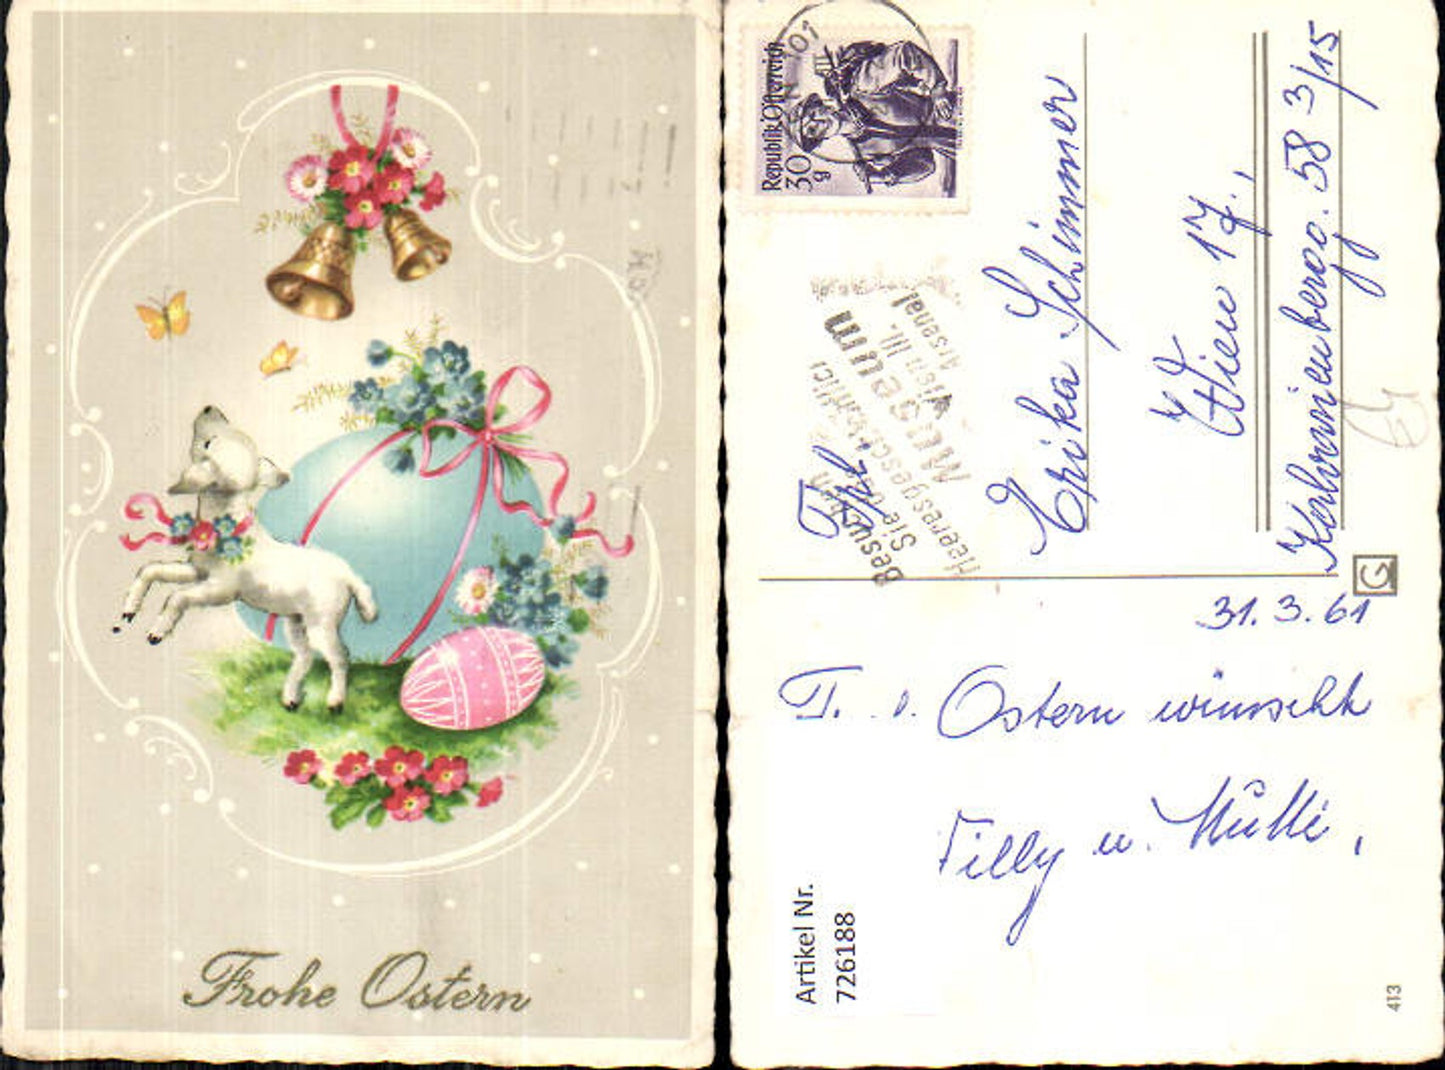 Frohe Ostern
Republik Österreich
30
g
01
Besuchen
Sie das
Heeresgeschichtliche
Museum
Wien III.
Arsenal
Frl.
Erika Schimmer
Wien 17.,
58 3/15
G
31. 3. 61
Ostern wünscht
Tilly u.
Artikel Nr.
726188
413